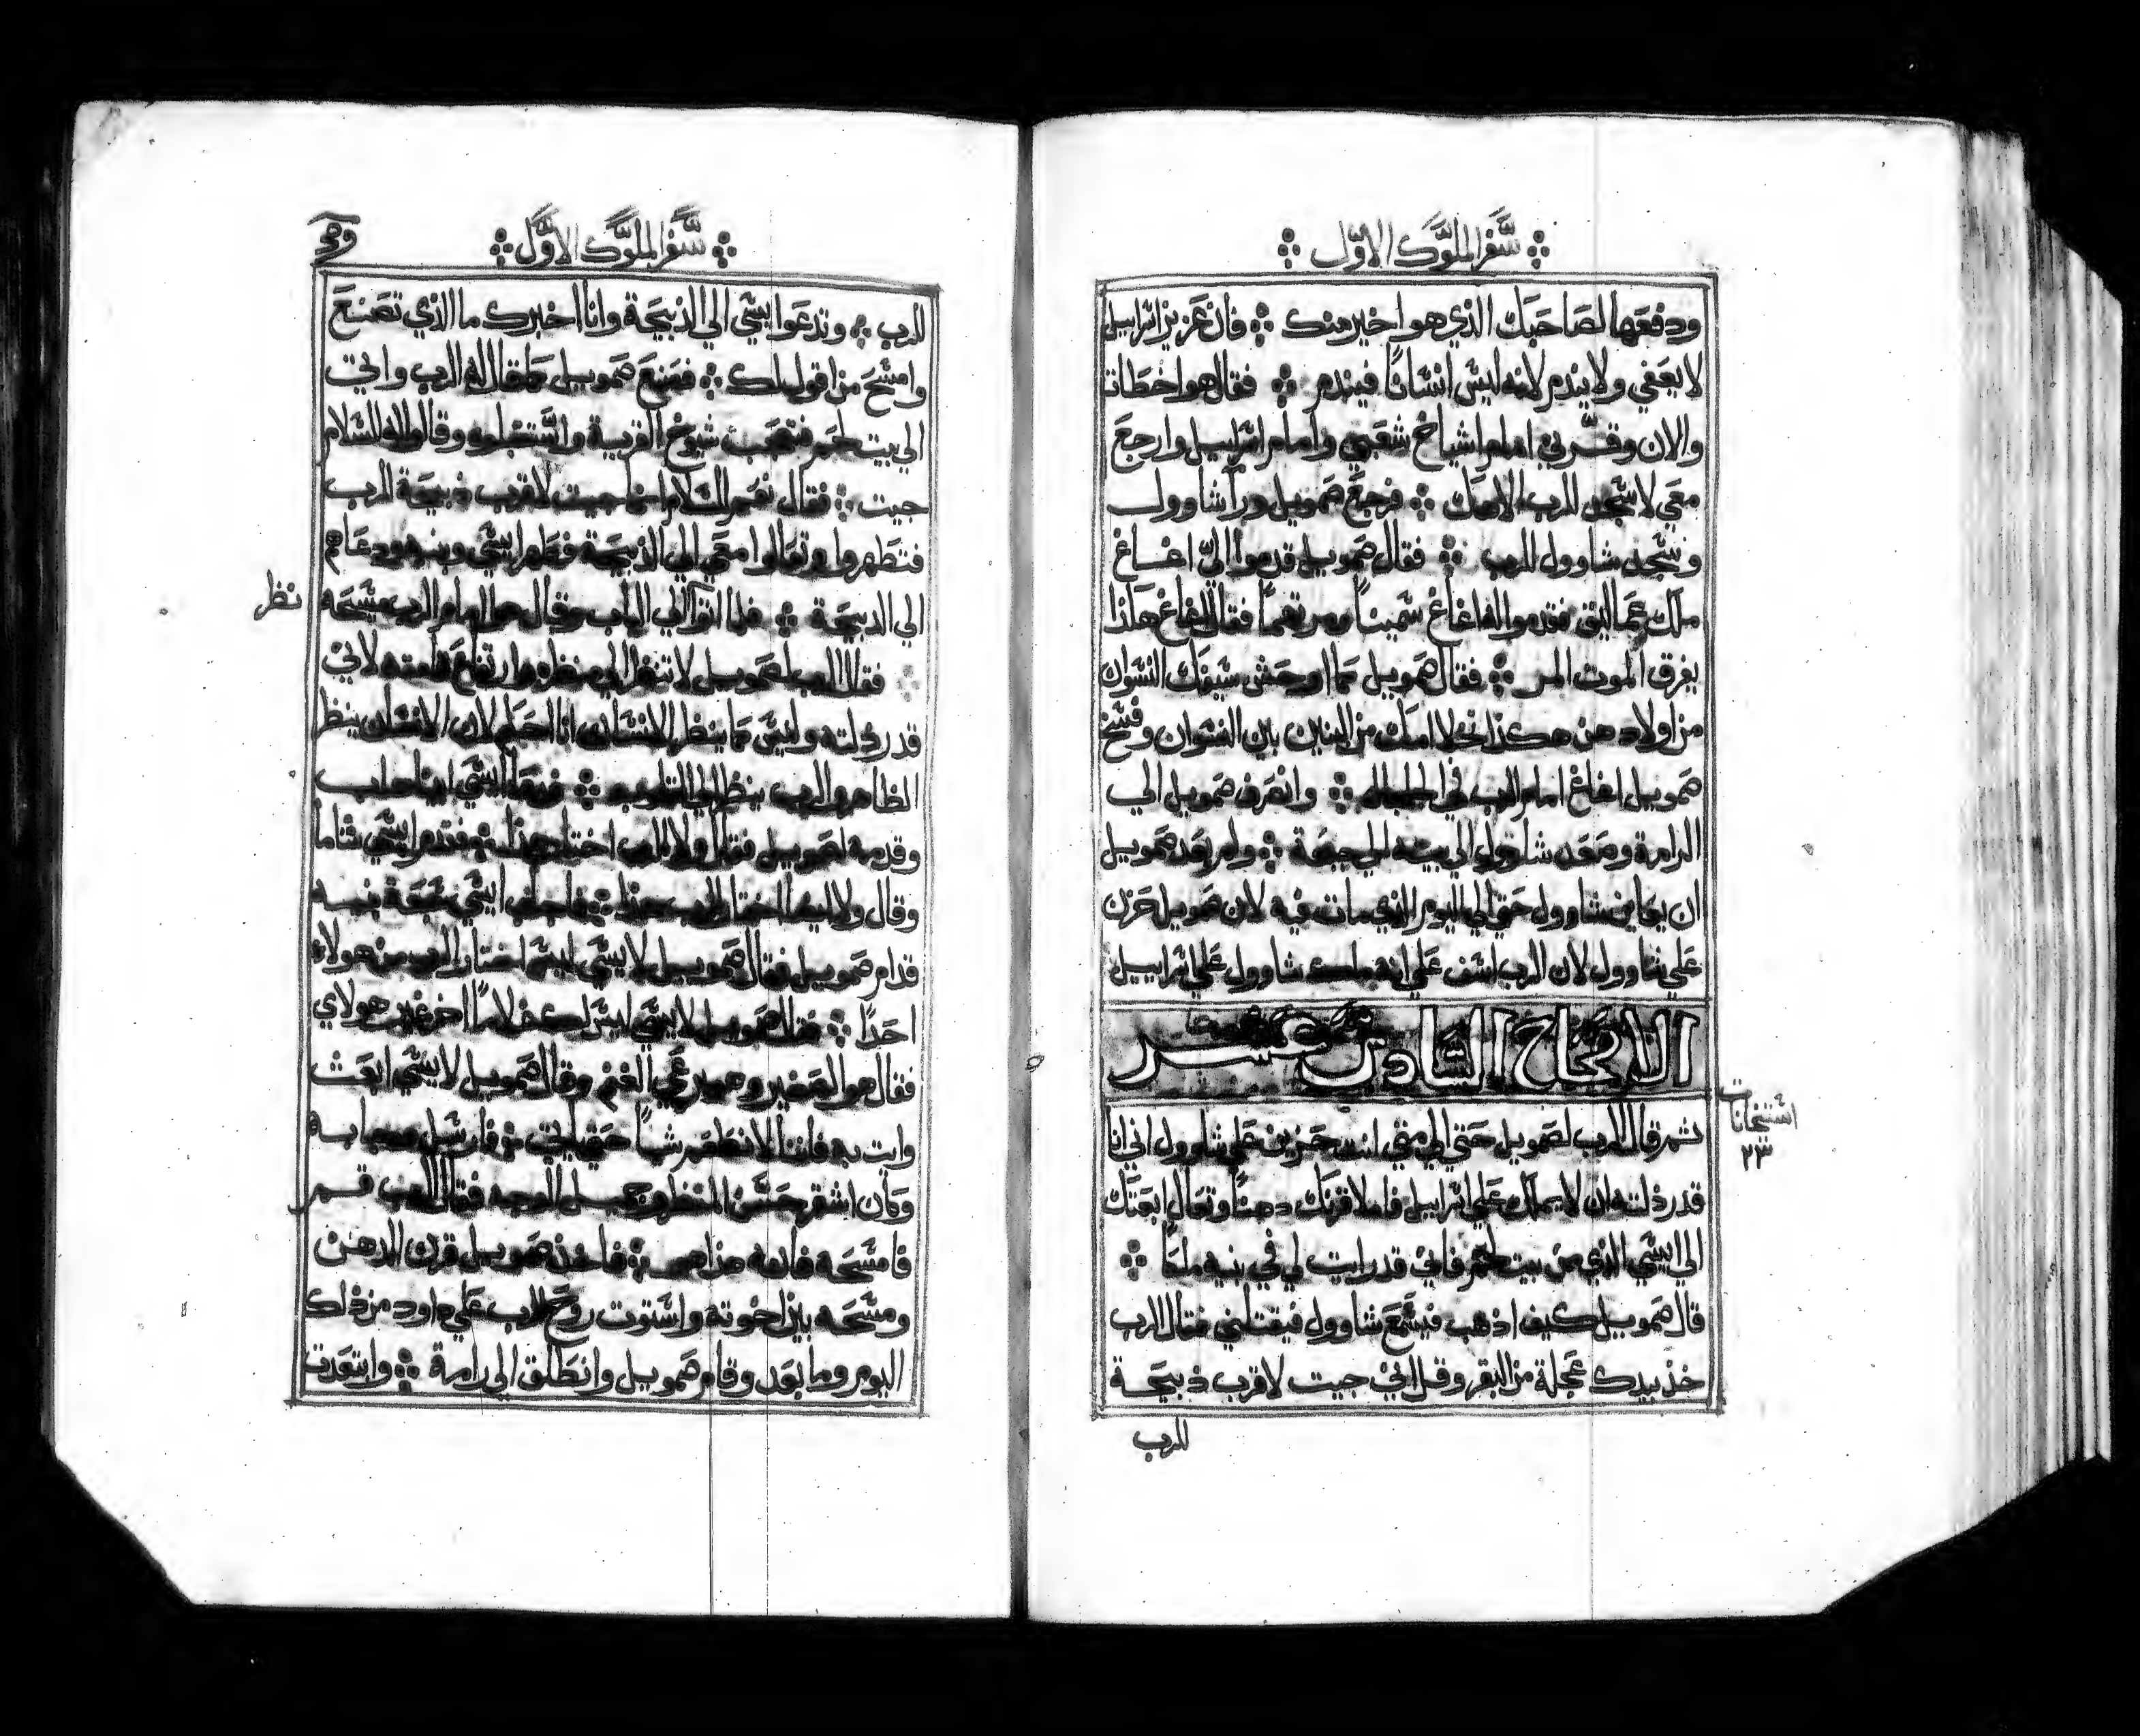 سفر الملوك الاول
ودفعها لصاحبك الذي هو اخير منك فان عزيز اسراييل
لا يعفي ولا يندم لانه ليس انسانًا فيندم فقال هوا خطات انا
والان وقرني امام اشياخ شعبي وامام اسراييل وارجع
معي لاسجد للرب الاهك فرجع صمويل ورا شاوول
وسجد شاوول للرب فقال صمويل قدموا اليّ اغاغ
ملك عماليق فقدموا له اغاغ سمينًا ومرتهمًا فقال اغاغ هلذا
يفرق الموت المر فقال صمويل كما اوحش سيفك النسوان
من اولادهن هكذا تخلا امك من البنين بين النسوان وفسخ
صمويل اغاغ امام الرب في الجلجال وانصرف صمويل الي
الرامة وصعد شاوول الي بيته الي جبعة ولم يعد صمويل
ان يعاين شاوول حتي الي اليوم الذي مات فيه لان صمويل حزن
علي شاوول لان الرب اسف علي انه ملك شاوول علي اسراييل
الاصحاح السادس عشر
ثم قال الرب لصمويل حتي الي متي انت حزين علي شاوول اني انا
قد رذلته ان لا يملك علي اسراييل فاملا قرنك دهنًا وتعال ابعتك
الي ايسي الذي من بيت لحم فاني قد رايت لي في بنيه ملكًا
قال صمويل كيف اذهب فيسمع شاوول فيقتلني فقال الرب
خذ بيدك عجلة من البقر وقل اني جيت لاقرب ذبيحة
للرب
٢٣
سفر الملوك الاول
للرب وتدعوا ايسي الي الذبيحة وانا اخبرك ما الذي تصنع
وامسح من اقول لك فصنع صمويل كما قال له الرب واتي
الي بيت لحم فتعجب شيوخ القرية واستقبلوه وقالوا له السلام
جيت فقال نعم السلام انا جيت لاقرب ذبيحة للرب
فتطهروا وتعالوا معي الي الذبيحة فطهر ايسي وبنيه ودعاهم
الي الدبيحة فلما اتوا الي الباب وقال هو امام الرب مسيحه
نظر
فقال الرب لصمويل لا تنظر الي منظره وارتفاع قامته لاني
قد رذلته وليس كما ينظر الانسان انا احكم لان الانسان ينظر
الظاهر والرب ينظر الي القلوب فدعا ايسي ابيناداب
وقدمه لصمويل فقال ولا الرب اختار هذا فقدم ايسي شاما
وقال ولا ايضا اختار الرب هذا فاجاب ايسي سبعة بنيه
قدام صمويل فقال صمويل لايسي ليس اختار الرب من هولاء
احدًا فقال صمويل لايسي ليس لك غلامًا اخر غير هولاي
فقال هوا الصغير وهو يرعي الغنم وقال صمويل لايسي ابعث
وايت به فاننا لا نطعم شيًا حتي ياتي فارسل وجا به
وكان اشقر حسن المنظر وجميل الوجه فقال الرب قم
فامسحه فانه هذا هو فاخذ صمويل قرن الدهن
ومسحه بين اخوته واستوت روح الرب علي داود من ذلك
اليوم وما بعد وقام صمويل وانطلق الي رامة وابتعدت